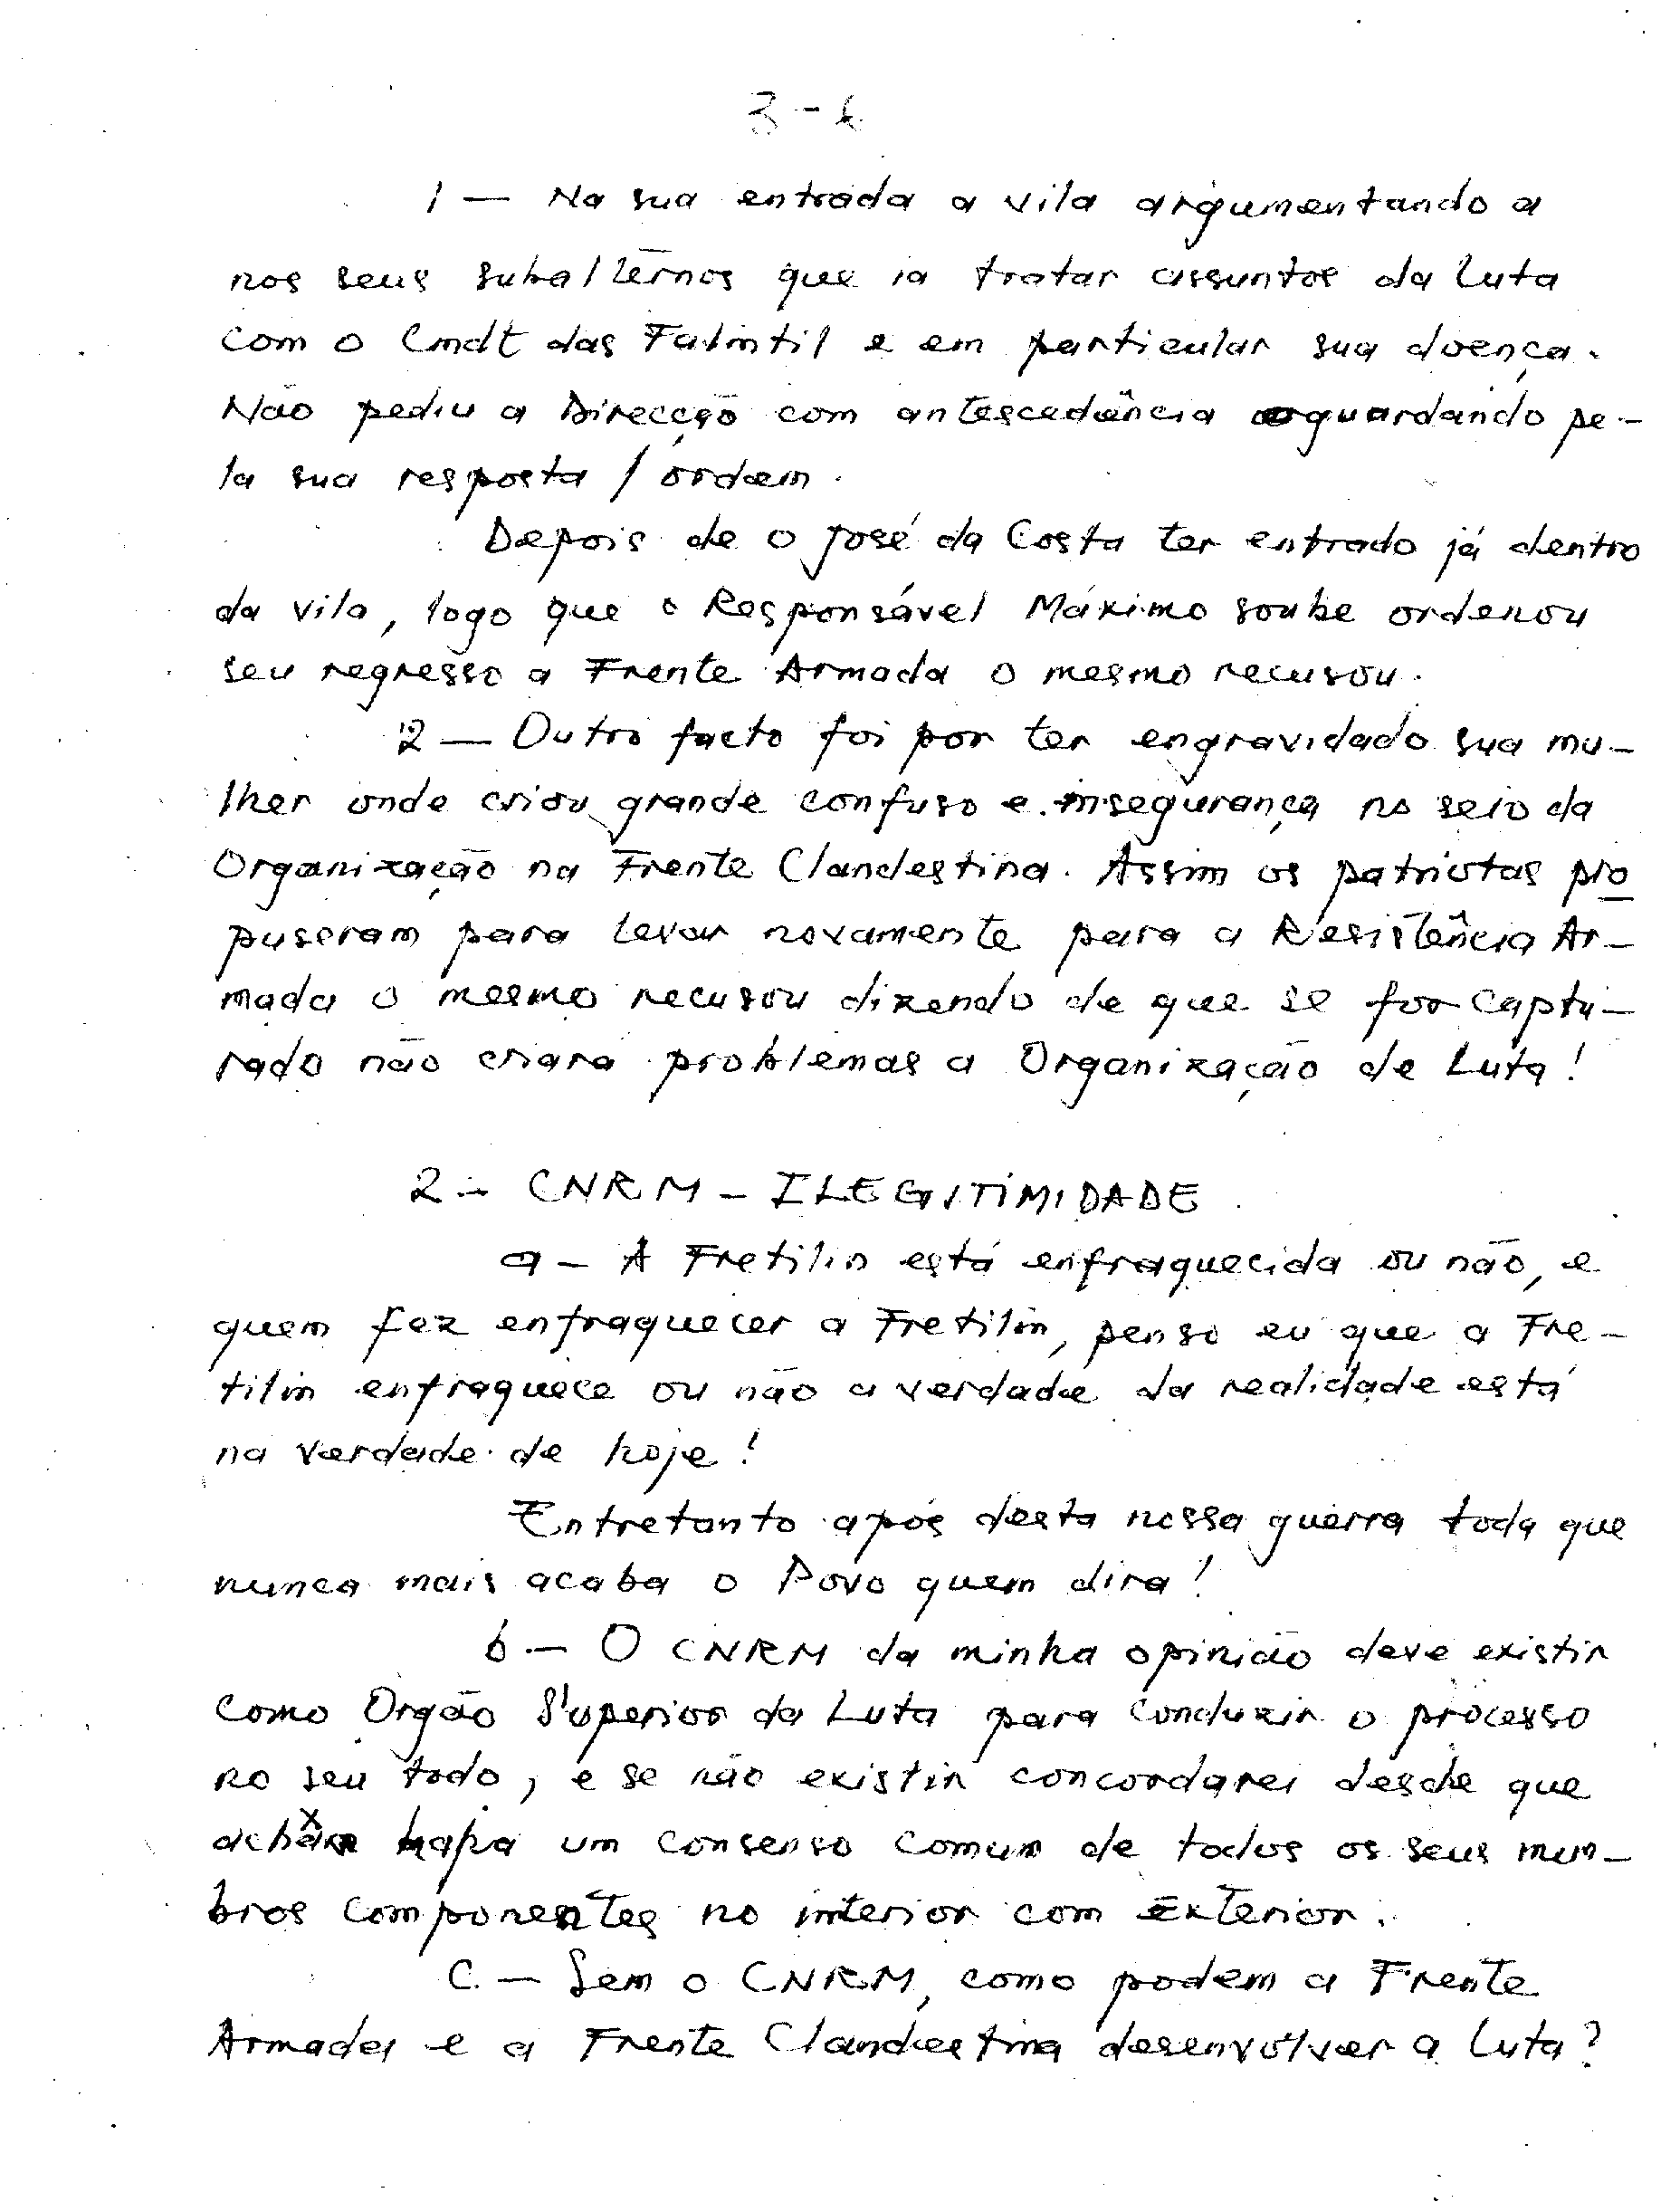 1 — Na sua entrada a vila argumentando a
nos seus subalternos que ia tratar assuntos da luta
com o Cmdt das Falintil e em particular sua doença.
Não pediu a Direcção com antescedência aguardando pe-
la sua resposta / ordem.
Depois de o José da Costa ter entrado já dentro
da vila, logo que o Responsável Máximo soube ordenou
seu regresso a Frente Armada o mesmo recusou.
2 — Outro facto foi por ter engravidado sua mu-
lher onde criou grande confuso e insegurança no seio da
Organização na Frente Clandestina. Assim os patriotas pro
puseram para levar novamente para a Resistência Ar-
mada o mesmo recusou dizendo de que se for captu-
rado não criara problemas a Organização de Luta!
2 - CNRM - ILEGITIMIDADE
a - A Fretilin está enfraquecida ou não, e
quem fez enfraquecer a Fretilin, penso eu que a Fre-
tilin enfraquece ou não a verdade da realidade está
na verdade de hoje!
Entretanto após desta nossa guerra toda que
nunca mais acaba o Povo quem dira!
b - O CNRM da minha opinião deve existir
como Orgão Superior da Luta para conduzir o processo
no seu todo, e se não existir concordarei desde que
haja um consenso comum de todos os seus mem-
bros componentes no interior com Exterior.
C. — Sem o CNRM, como podem a Frente
Armada e a Frente Clandestina desenvolver a luta?